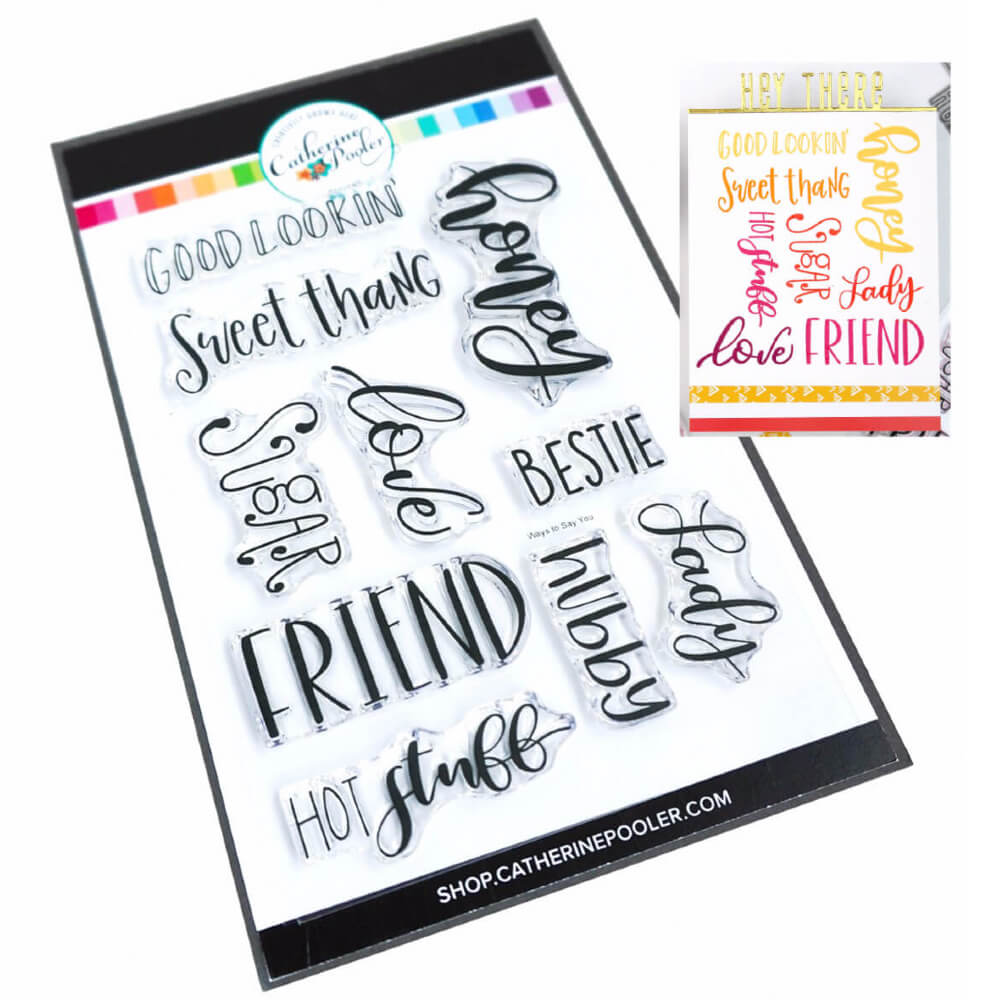 Catherine
Pooler
GOOD LOOKIN'
honey
Sweet thang
SUgAR
love
BESTIE
Ways to Say You
FRIEND
hubby
Lady
HOT stuff
SHOP.CATHERINEPOOLER.COM
HEY THERE
GOOD LOOKIN'
honey
Sweet thang
HOT stuff
SUgAR
Lady
love FRIEND